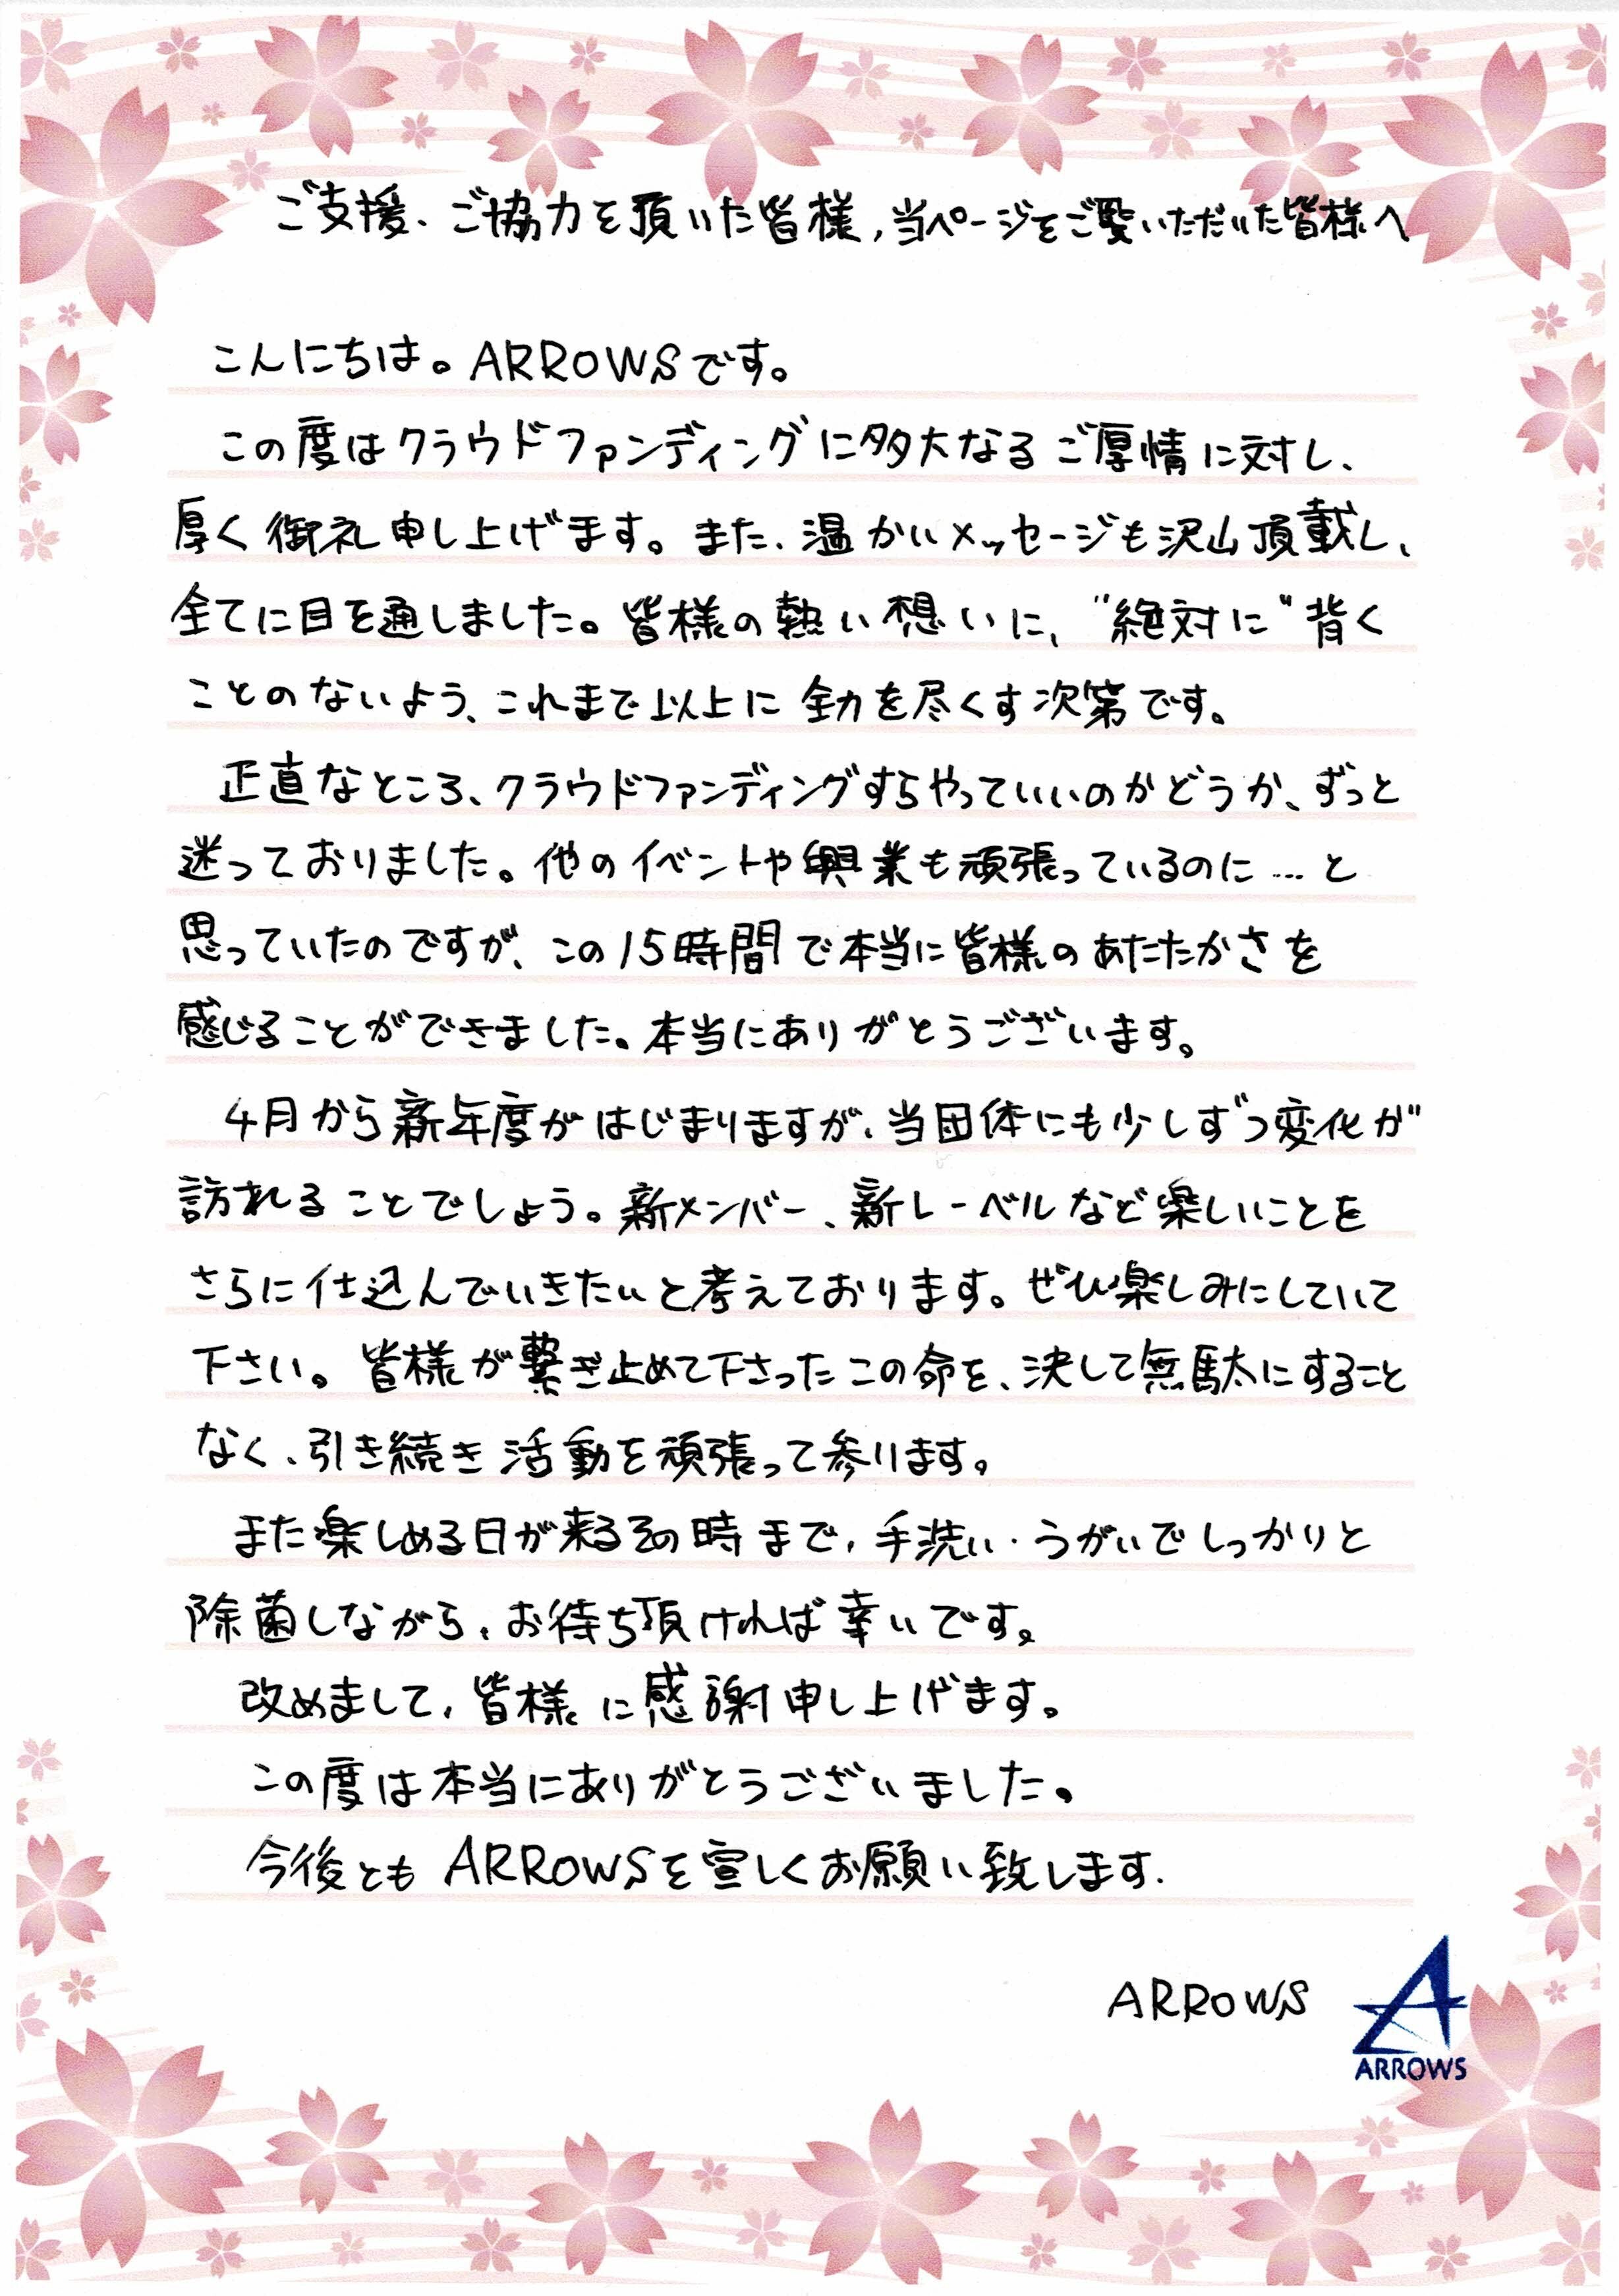 ご支援、ご協力を頂いた皆様、当ページをご覧いただいた皆様へ
こんにちは。ARROWSです。
この度はクラウドファンディングに多大なるご厚情に対し、
厚く御礼申し上げます。また、温かいメッセージも沢山頂戴し、
全てに目を通しました。皆様の熱い想いに、"絶対に"背く
ことのないよう、これまで以上に全力を尽くす次第です。
正直なところ、クラウドファンディングすらやっていいのかどうか、ずっと
迷っておりました。他のイベントや興業も頑張っているのに…と
思っていたのですが、この15時間で本当に皆様のあたたかさを
感じることができました。本当にありがとうございます。
4月から新年度がはじまりますが、当団体にも少しずつ変化が
訪れることでしょう。新メンバー、新レーベルなど楽しいことを
さらに仕込んでいきたいと考えております。ぜひ楽しみにしていて
下さい。皆様が繋ぎ止めて下さったこの命を、決して無駄にすること
なく、引き続き活動を頑張って参ります。
また楽しめる日が来るその時まで、手洗い・うがいでしっかりと
除菌しながら、お待ち頂ければ幸いです。
改めまして、皆様に感謝申し上げます。
この度は本当にありがとうございました。
今後ともARROWSを宜しくお願い致します.
ARROWS
ARROWS